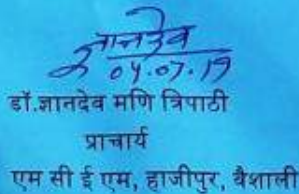 ज्ञानदेव
04.07.19
डॉ.ज्ञानदेव मणि त्रिपाठी
प्राचार्य
एम सी ई एम, हाजीपुर, वैशाली